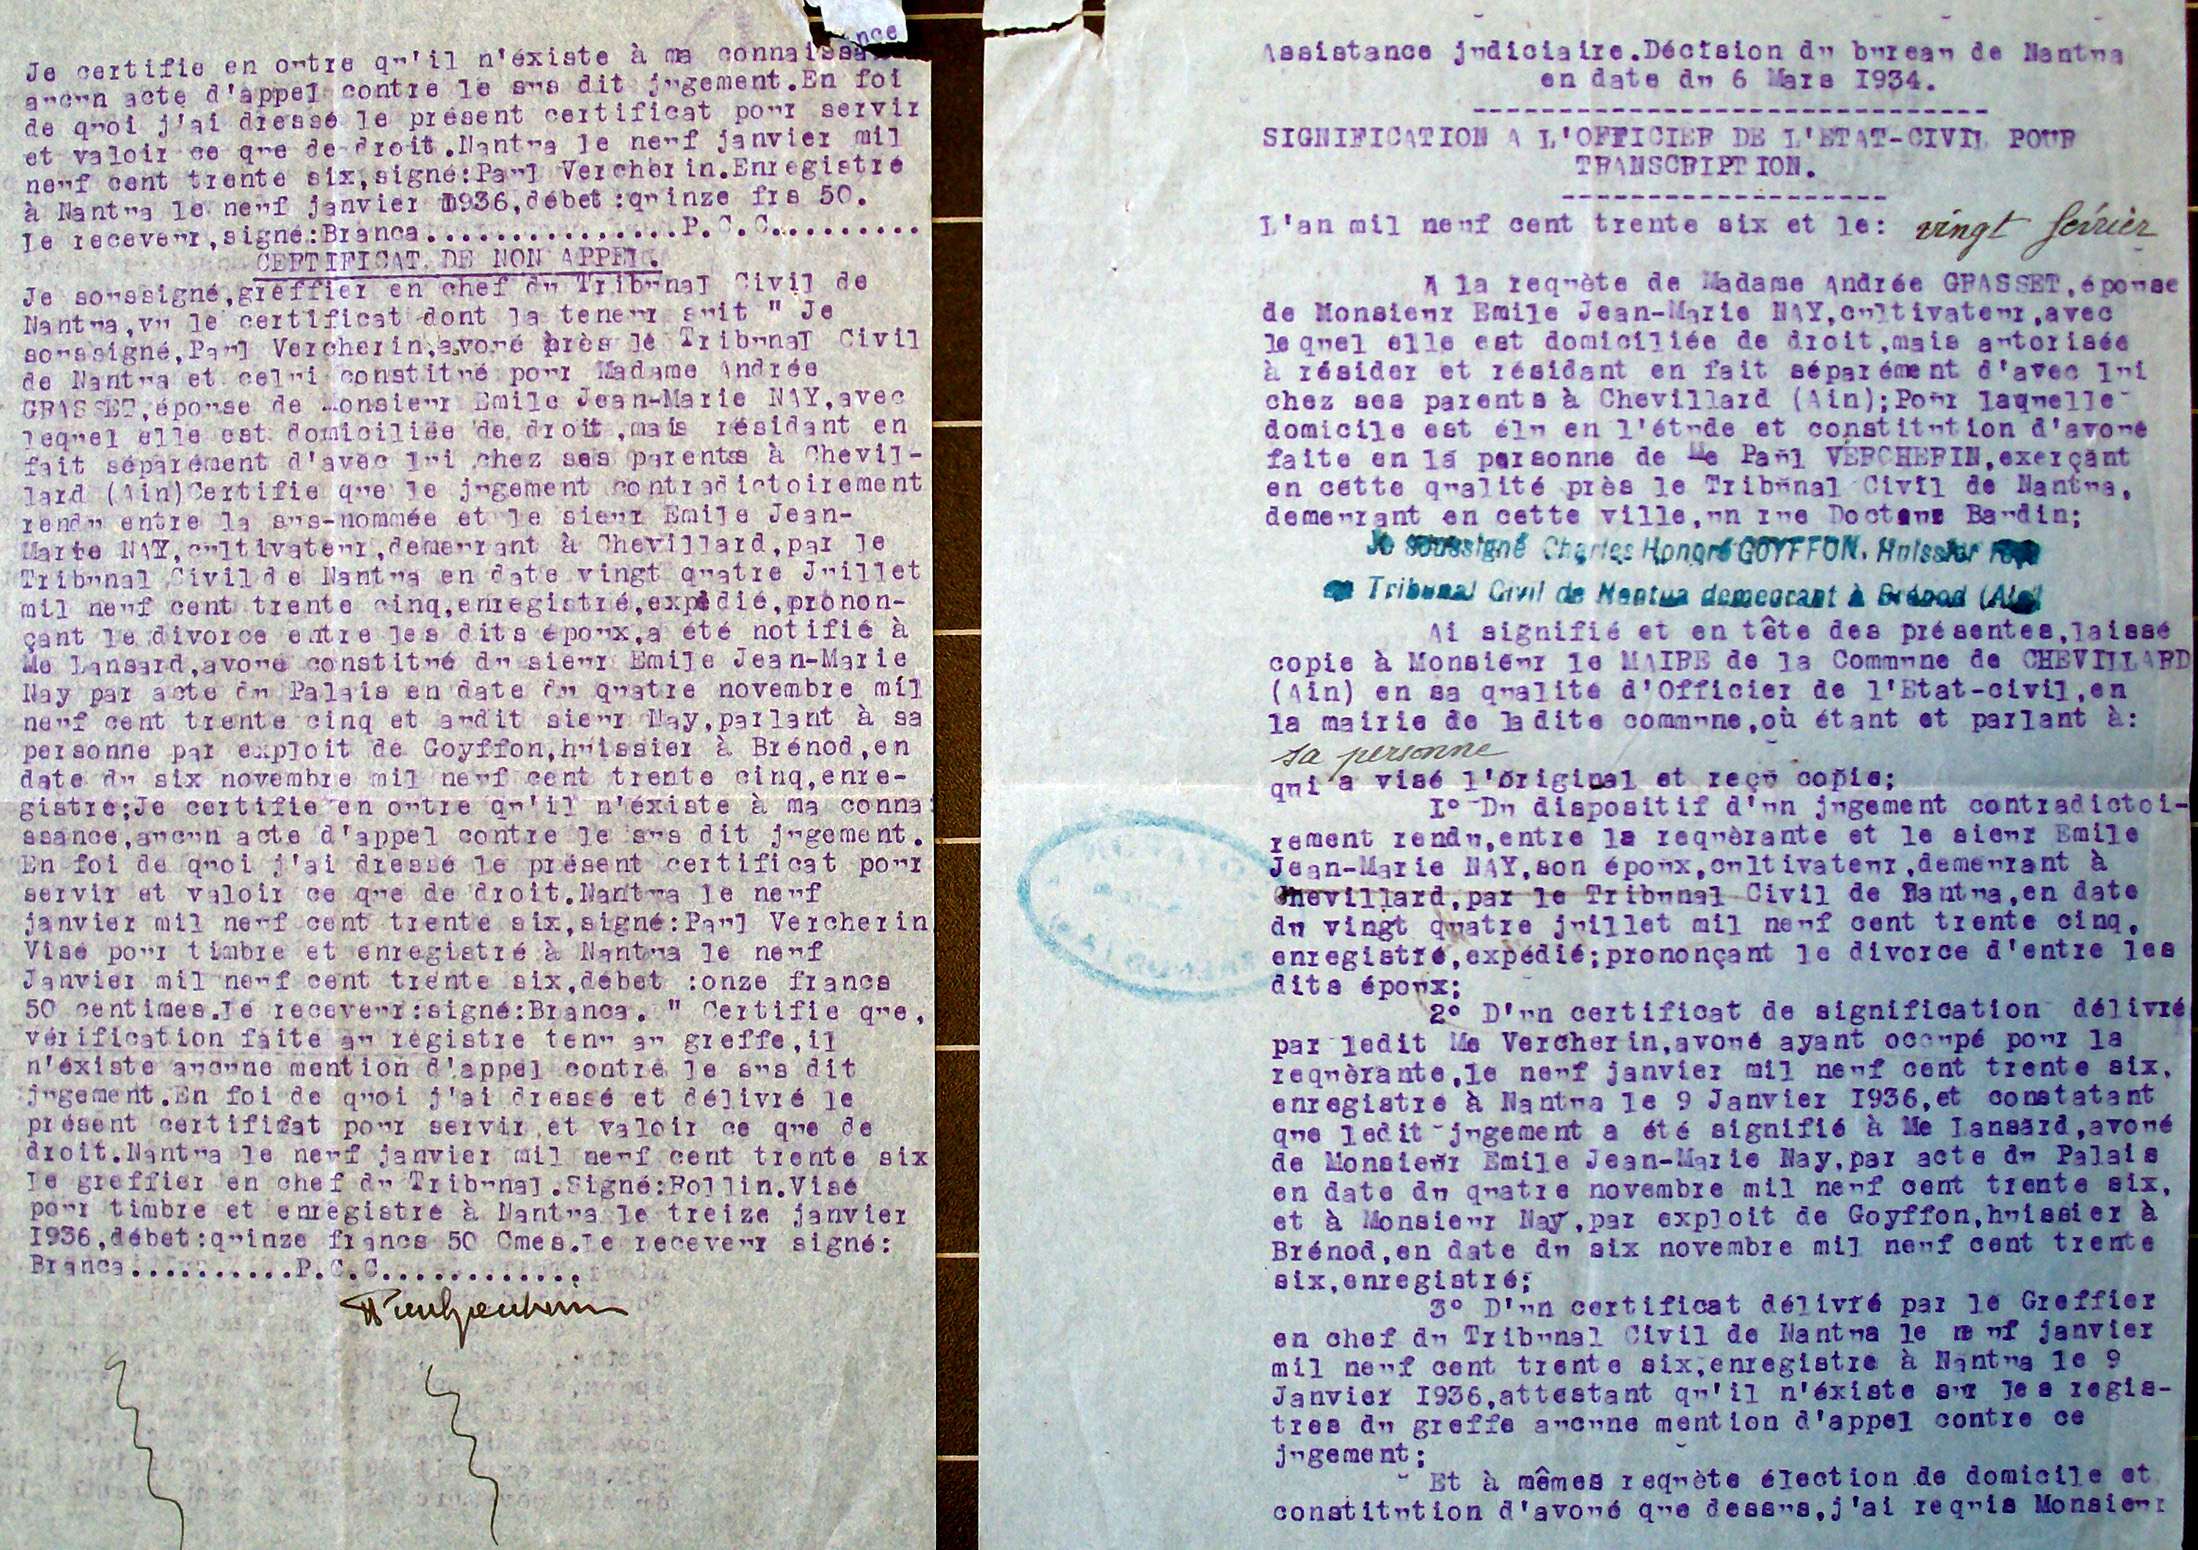 Je certifie en outre qu'il n'éxiste à ma connaissance
aucun acte d'appel contre le sus dit jugement.En foi
de quoi j'ai dressé le présent certificat pour servir
et valoir ce que de droit.Nantua le neuf janvier mil
neuf cent trente six,signé:Paul Vercherin.Enregistré
à Nantua le neuf janvier 1936,débet:quinze frs 50.
Le receveur,signé:Branca...............P.C.C..........
CERTIFICAT DE NON APPEL.
Je soussigné,greffier en chef du Tribunal Civil de
Nantua,vu le certificat dont la teneur suit " Je
soussigné,Paul Vercherin,avoué près le Tribunal Civil
de Nantua et celui constitué pour Madame Andrée
GRASSET,épouse de Monsieur Emile Jean-Marie NAY,avec
lequel elle est domiciliée de droit,mais résidant en
fait séparément d'avec lui chez ses parents à Chevil-
lard (Ain)Certifie que le jugement contradictoirement
rendu entre la sus-nommée et le sieur Emile Jean-
Marie NAY,cultivateur,demeurant à Chevillard,par le
Tribunal Civil de Nantua en date vingt quatre Juillet
mil neuf cent trente cinq,enregistré,expédié,pronon-
çant le divorce entre les dits époux,a été notifié à
Me Lansard,avoué constitué du sieur Emile Jean-Marie
Nay par acte du Palais en date du quatre novembre mil
neuf cent trente cinq et audit sieur Nay,parlant à sa
personne par exploit de Goyffon,huissier à Brénod,en
date du six novembre mil neuf cent trente cinq,enre-
gistré;Je certifie en outre qu'il n'éxiste à ma connai
ssance,aucun acte d'appel contre le sus dit jugement.
En foi de quoi j'ai dressé le présent certificat pour
servir et valoir ce que de droit.Nantua le neuf
janvier mil neuf cent trente six,signé:Paul Vercherin
Visé pour timbre et enregistré à Nantua le neuf
Janvier mil neuf cent trente six,débet :onze francs
50 centimes.Le receveur:signé:Branca. " Certifie que,
vérification faite au régistre tenu au greffe,il
n'éxiste aucune mention d'appel contre le sus dit
jugement.En foi de quoi j'ai dressé et délivré le
présent certificat pour servir et valoir ce que de
droit.Nantua le neuf janvier mil neuf cent trente six
Le greffier en chef du Tribunal.Signé:Rollin.Visé
pour timbre et enregistré à Nantua le treize janvier
1936,débet:quinze francs 50 Cmes.Le receveur signé:
Branca..........P.C.C............
Assistance judiciaire.Décision du bureau de Nantua
en date du 6 Mars 1934.
SIGNIFICATION A L'OFFICIER DE L'ETAT-CIVIL POUR
TRANSCRIPTION.
L'an mil neuf cent trente six et le: vingt février
A la requète de Madame Andrée GRASSET,épouse
de Monsieur Emile Jean-Marie NAY,cultivateur,avec
lequel elle est domiciliée de droit,mais autorisée
à résider et résidant en fait séparément d'avec lui
chez ses parents à Chevillard (Ain);Pour laquelle
domicile est élu en l'étude et constitution d'avoué
faite en la personne de Me Paul VERCHERIN,exerçant
en cette qualité près le Tribunal Civil de Nantua,
demeurant en cette ville,un rue Docteur Baudin;
Je soussigné Charles Honoré GOYFFON, Huissier
Tribunal Civil de Nantua demeurant à Brénod (Ain)
Ai signifié et en tête des présentes,laissé
copie à Monsieur le MAIRE de la Commune de CHEVILLARD
(Ain) en sa qualité d'Officier de l'Etat-civil,en
la mairie de ladite commune,où étant et parlant à:
sa personne
qui a visé l'original et reçu copie;
1° Du dispositif d'un jugement contradictoi-
rement rendu,entre la requèrante et le sieur Emile
Jean-Marie NAY,son époux,cultivateur,demeurant à
Chevillard,par le Tribunal Civil de Nantua,en date
du vingt quatre juillet mil neuf cent trente cinq,
enregistré,expédié;prononçant le divorce d'entre les
dits époux;
2° D'un certificat de signification délivré
par ledit Me Vercherin,avoué ayant occupé pour la
requèrante,le neuf janvier mil neuf cent trente six,
enregistré à Nantua le 9 Janvier 1936,et constatant
que ledit jugement a été signifié à Me Lansard,avoué
de Monsieur Emile Jean-Marie Nay,par acte du Palais
en date du quatre novembre mil neuf cent trente six,
et à Monsieur Nay,par exploit de Goyffon,huissier à
Brénod,en date du six novembre mil neuf cent trente
six,enregistré;
3° D'un certificat délivré par le Greffier
en chef du Tribunal Civil de Nantua le neuf janvier
mil neuf cent trente six,enregistré à Nantua le 9
Janvier 1936,attestant qu'il n'éxiste sur les regis-
tres du greffe aucune mention d'appel contre ce
jugement;
Et à mêmes requète élection de domicile et
constitution d'avoué que dessus,j'ai requis Monsieur